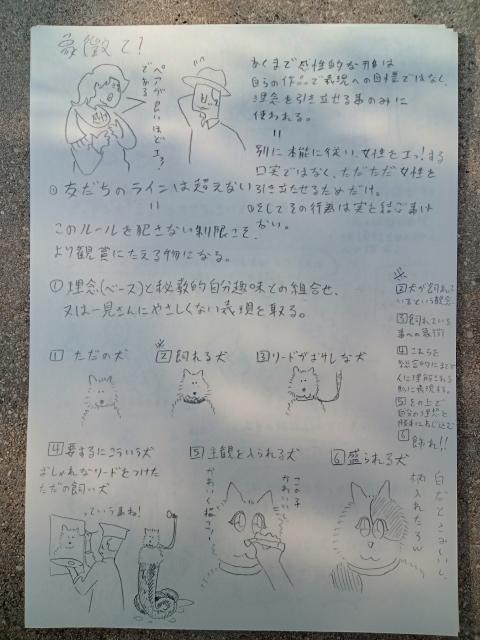 象徴て?
ペアが良いほどエラ!
である
あくまで感性的な形は
自らの作品で表現への目標ではなく、
理念を引き立せる事のみに
使われる。
=
別に本能に従い、女性をエッ!する
口実ではなく、ただただ女性を
引き立たせるためだけ。
①そしてその行為は実を結ぶ事は
ない。
①友だちのラインは超えない
=
このルールを犯さない制限こそ、
より観賞にたえる物になる。
①理念(ベース)と秘教的自分趣味との組合せ、
又は一見さんにやさしくない表現を取る。
1 ただの犬
※
2 飼れる犬
3 リードがオサレな犬
4 要するにこういう犬
おしゃれなリードをつけた
ただの飼い犬
っていうまね!
5 主観を入られる犬
この子
かわいい
かわいく描こう!
6 盛られる犬
白だとさみしいし
柄入れたろw
※
2 犬が飼れて
いるという観念
3 飼れている
事への象徴
4 これらを
総合的にまとめ
人に理解される
形に表現する。
5 その上で
自分の理想を
勝手におしこむ
6 飾れ!!